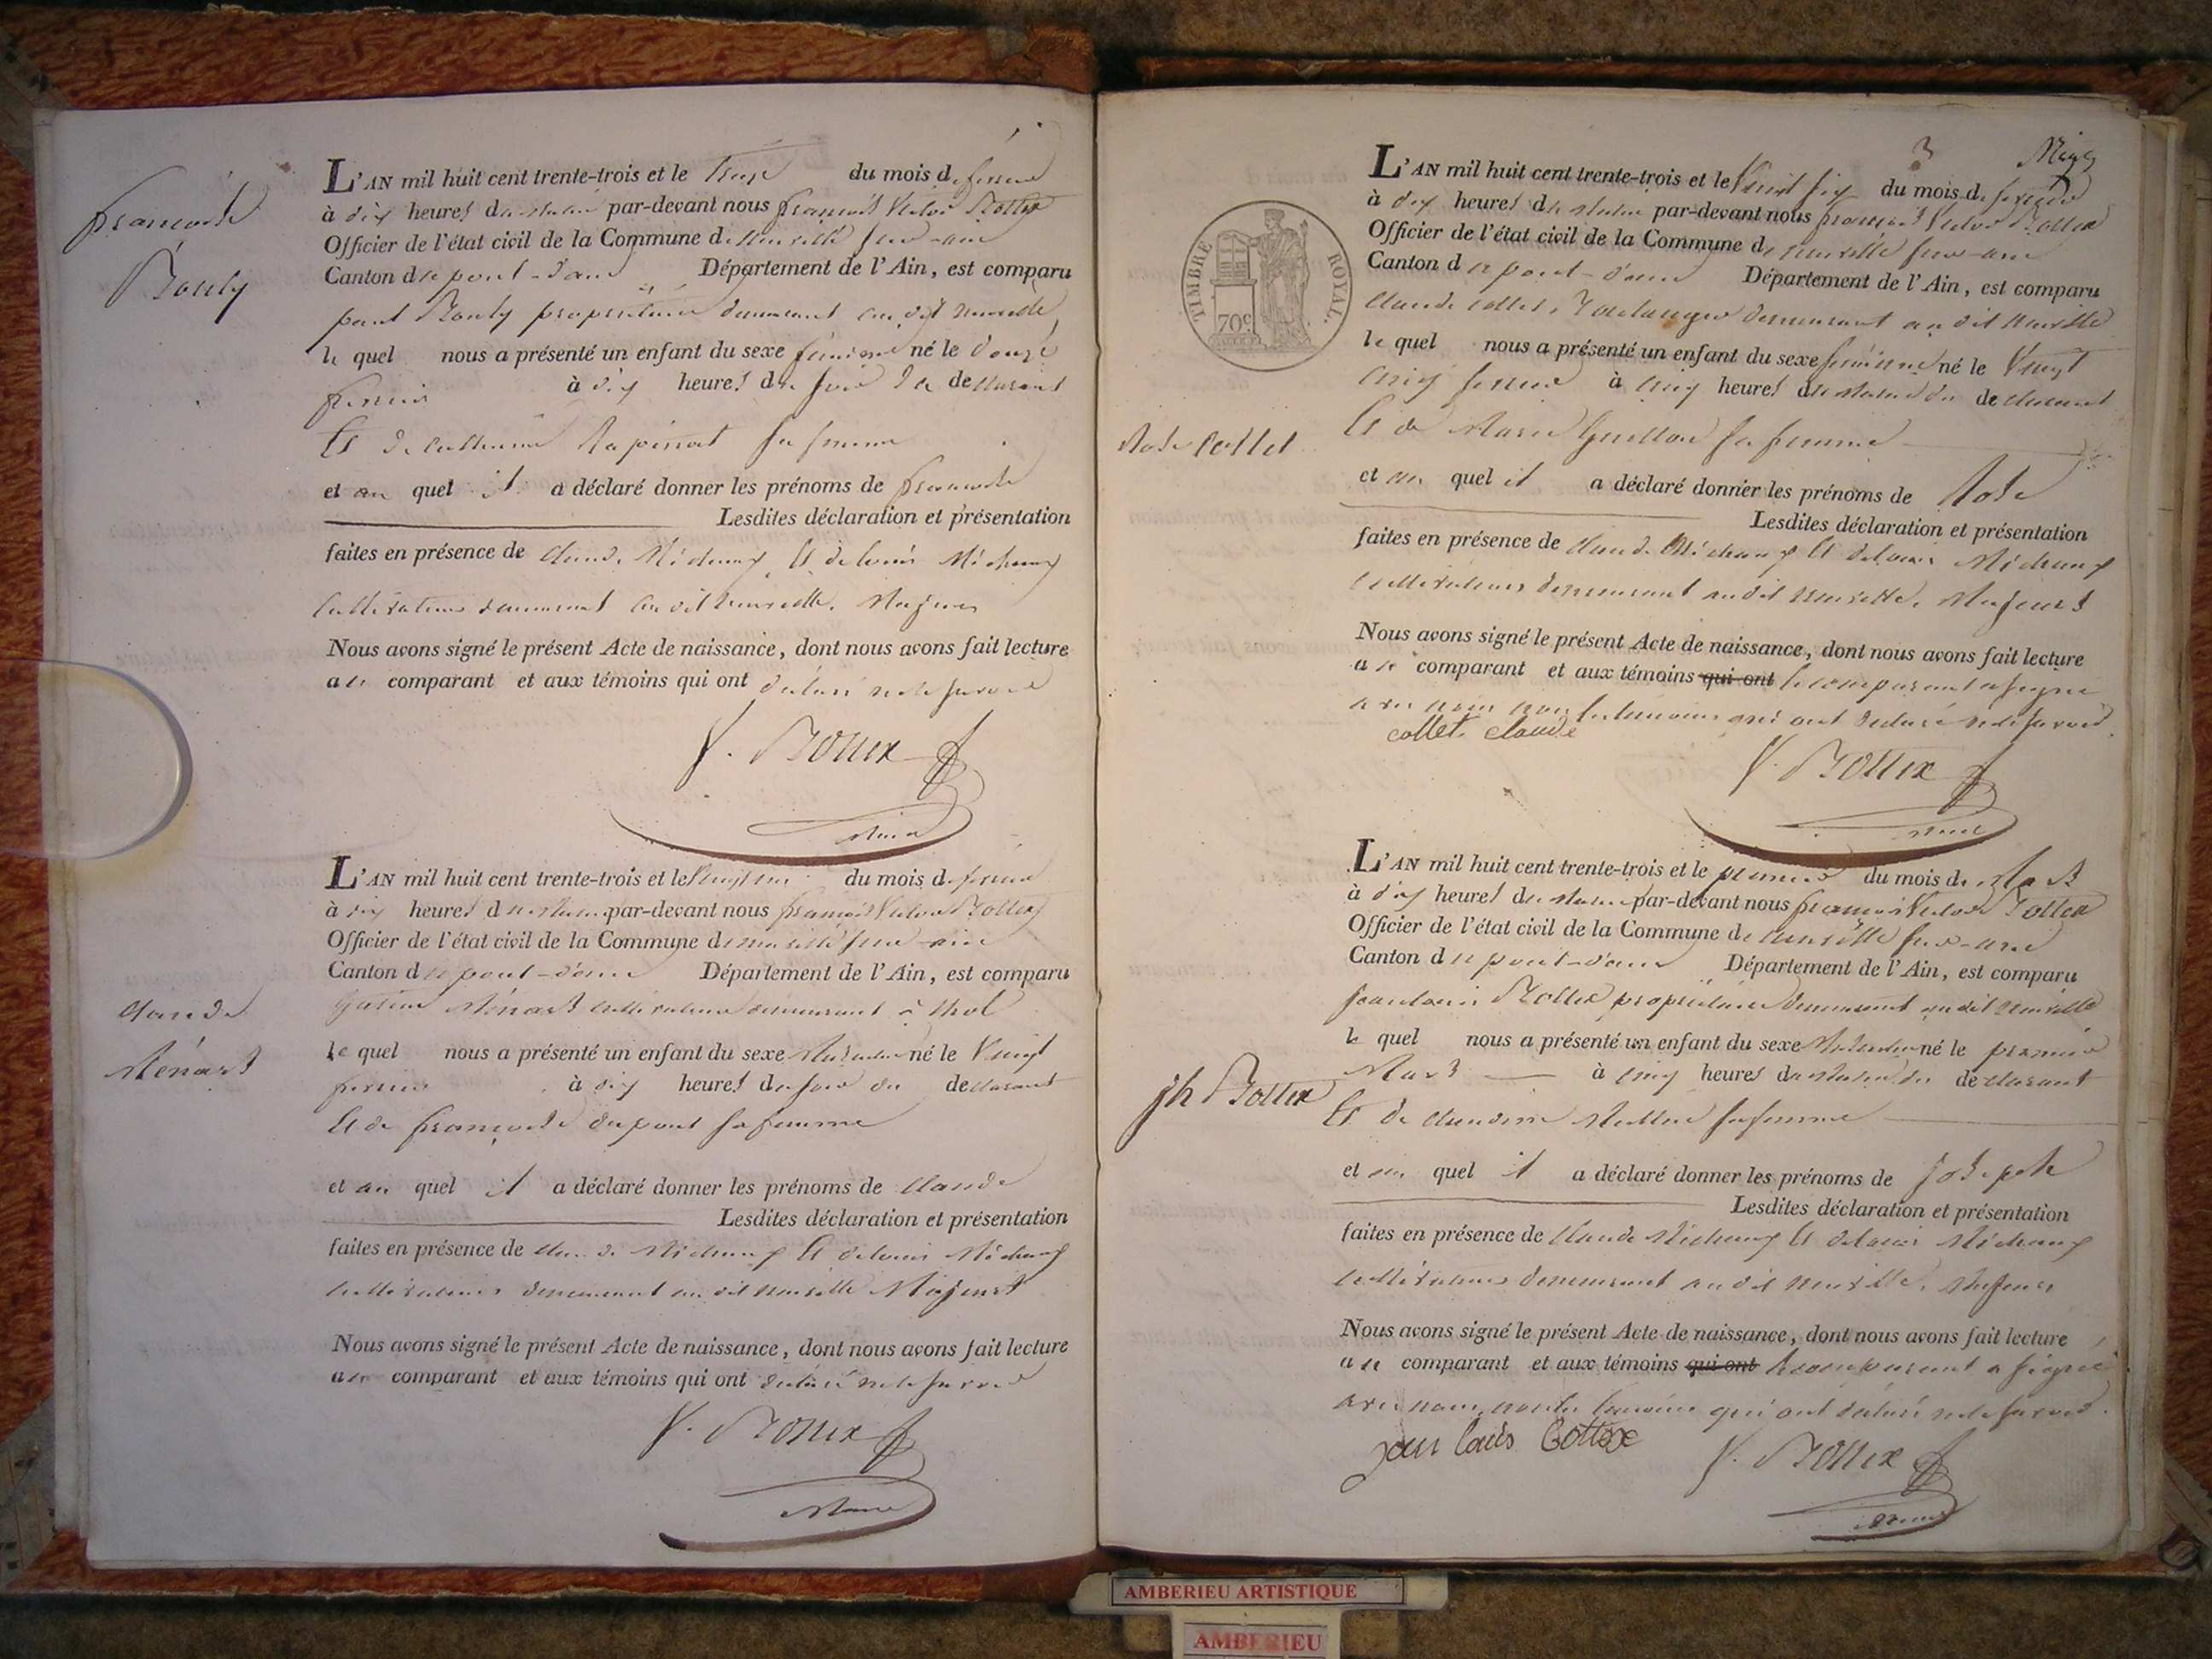 françoise
Bouly
L'AN mil huit cent trente-trois et le treize du mois de fevrier
à dix heures du matin par-devant nous françois Victor Bottex
Officier de l'état civil de la Commune de neuville sur-ain
Canton de pont-d'ain Département de l'Ain, est comparu
Bouly propriétaire demeurant au dit neuville
le quel nous a présenté un enfant du sexe féminin né le douze
fevrier à dix heures du soir de declarant
Et de catherine sa femme
et au quel il a déclaré donner les prénoms de francoise
Lesdites déclaration et présentation
faites en présence de claude Michaux Et de louis Michaux
cultivateurs demeurant au dit neuville. Majeurs
Nous avons signé le présent Acte de naissance, dont nous avons fait lecture
au comparant et aux témoins qui ont déclaré ne le savoir
V. Bottex
Maire
claude
Ménard
L'AN mil huit cent trente-trois et le vingt un du mois de fevrier
à dix heures du matin par-devant nous françois Victor Bottex
Officier de l'état civil de la Commune de neuville sur-ain
Canton de pont-d'ain Département de l'Ain, est comparu
cultivateur demeurant à thol
le quel nous a présenté un enfant du sexe Masculin né le Vingt
fevrier à dix heures du soir du declarant
Et de francoise dupont sa femme
et au quel il a déclaré donner les prénoms de claude
Lesdites déclaration et présentation
faites en présence de claude Michaux Et de louis Michaux
cultivateurs demeurant au dit neuville Majeurs
Nous avons signé le présent Acte de naissance, dont nous avons fait lecture
au comparant et aux témoins qui ont déclaré ne le savoir
V. Bottex
Maire
3
TIMBRE ROYAL.
70c
L'AN mil huit cent trente-trois et le Vingt six du mois de fevrier
à dix heures du matin par-devant nous francois Victor Bottex
Officier de l'état civil de la Commune de neuville sur-ain
Canton de pont-d'ain Département de l'Ain, est comparu
claude collet, Boulanger demeurant au dit neuville
le quel nous a présenté un enfant du sexe féminin né le Vingt
cinq fevrier à cinq heures du matin du declarant
Rose Collet
Et de Marie sa femme
et au quel il a déclaré donner les prénoms de Rose
Lesdites déclaration et présentation
faites en présence de claude Michaux Et de louis Michaux
cultivateurs demeurant au dit neuville. Majeurs
Nous avons signé le présent Acte de naissance, dont nous avons fait lecture
au comparant et aux témoins qui ont le comparant a signé
avec nous non les temoins qui ont declaré ne le savoir.
collet claude
V. Bottex
Maire
L'AN mil huit cent trente-trois et le premier du mois de Mars
à dix heures du matin par-devant nous françois Victor Bottex
Officier de l'état civil de la Commune de neuville sur-ain
Canton de pont-d'ain Département de l'Ain, est comparu
jean louis Bottex propriétaire demeurant au dit neuville
le quel nous a présenté un enfant du sexe Masculin né le premier
Mars à cinq heures du matin du declarant
jh Bottex
Et de claudine sa femme
et au quel il a déclaré donner les prénoms de joseph
Lesdites déclaration et présentation
faites en présence de claude Michaux Et de louis Michaux
cultivateurs demeurant au dit neuville. Majeurs
Nous avons signé le présent Acte de naissance, dont nous avons fait lecture
au comparant et aux témoins qui ont le comparant a signé
avec nous, non les temoins qui ont déclaré ne le savoir.
jean louis Bottex V. Bottex
Maire
AMBERIEU ARTISTIQUE
AMBERIEU